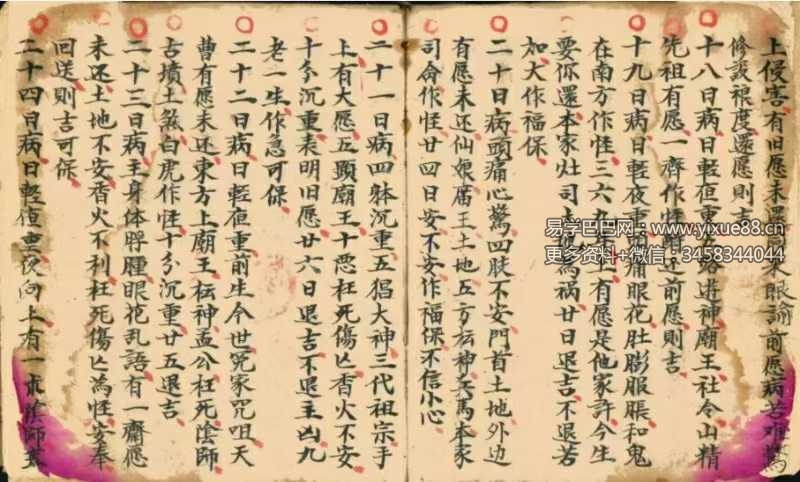 上侵害有旧愿未還前來眼前愿病若难
修設禳度還愿則吉
十八日病日輕夜重五路逰神廟王社令山精
先祖有愿一齊作怪還前愿則吉
十九日病日輕夜重痛眼花肚膨服脹和鬼
在南方作怪三六九上有愿是他家許今生
要你還本家灶司為祸廿日退吉不退若
加大作福保
二十日病頭痛心驚四肢不安門首土地外边
有愿未还仙娘庙王土地五方坛神兵馬本家
司命作怪廿四日安不安作福保不信小心
二十一日病四躰沉重五猖大神三代祖宗手
上有大愿五顕廟王十悪枉死傷亡香火不安
十分沉重表明旧愿廿六日退吉不退主凶九
老一生作急可保
二十二日病日輕夜重前生今世冤家咒咀天
曹有愿未還東方上廟王坛神孟公枉死陰師
古墳土煞白虎作怪十分沉重廿五退吉
二十三日病主身体腫眼花乱語有一齋愿
未还土地不安香火不利枉死傷亡為怪安奉
回送則吉可保
二十四日病日輕夜重向上有一陰師
易学巴巴网：www.yixue88.cn
更多资料+微信：3458344044